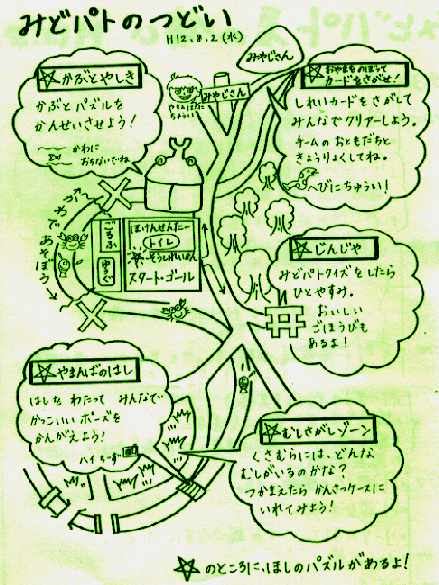 みどパトのつどい
H12.8.2(水)
みやじさん
☆かぶとやしき
かぶとパズルを
かんせいさせよう!
かわに
おちないでね
みやじさん
☆おやまをのぼって
カードをさがせ!
しれいカードをさがして
みんなでクリアーしよう。
チームのおともだちと
きょうりょくしてね。
へびにちゅうい!
かわであそぼう
ほけんせんたー
トイレ
スタート・ゴール
☆じんじゃ
みどパトクイズをしたら
ひとやすみ。
おいしい
ごほうびも
あるよ!
☆やまんばのはし
はしをわたって みんなで
かっこいいポーズを
かんがえよう!
ハイちーず
☆むしさがしゾーン
くさむらには、どんな
むしがいるのかな?
つかまえたら かんさつケースに
いれてみよう!
☆のところに、ほしのパズルがあるよ!